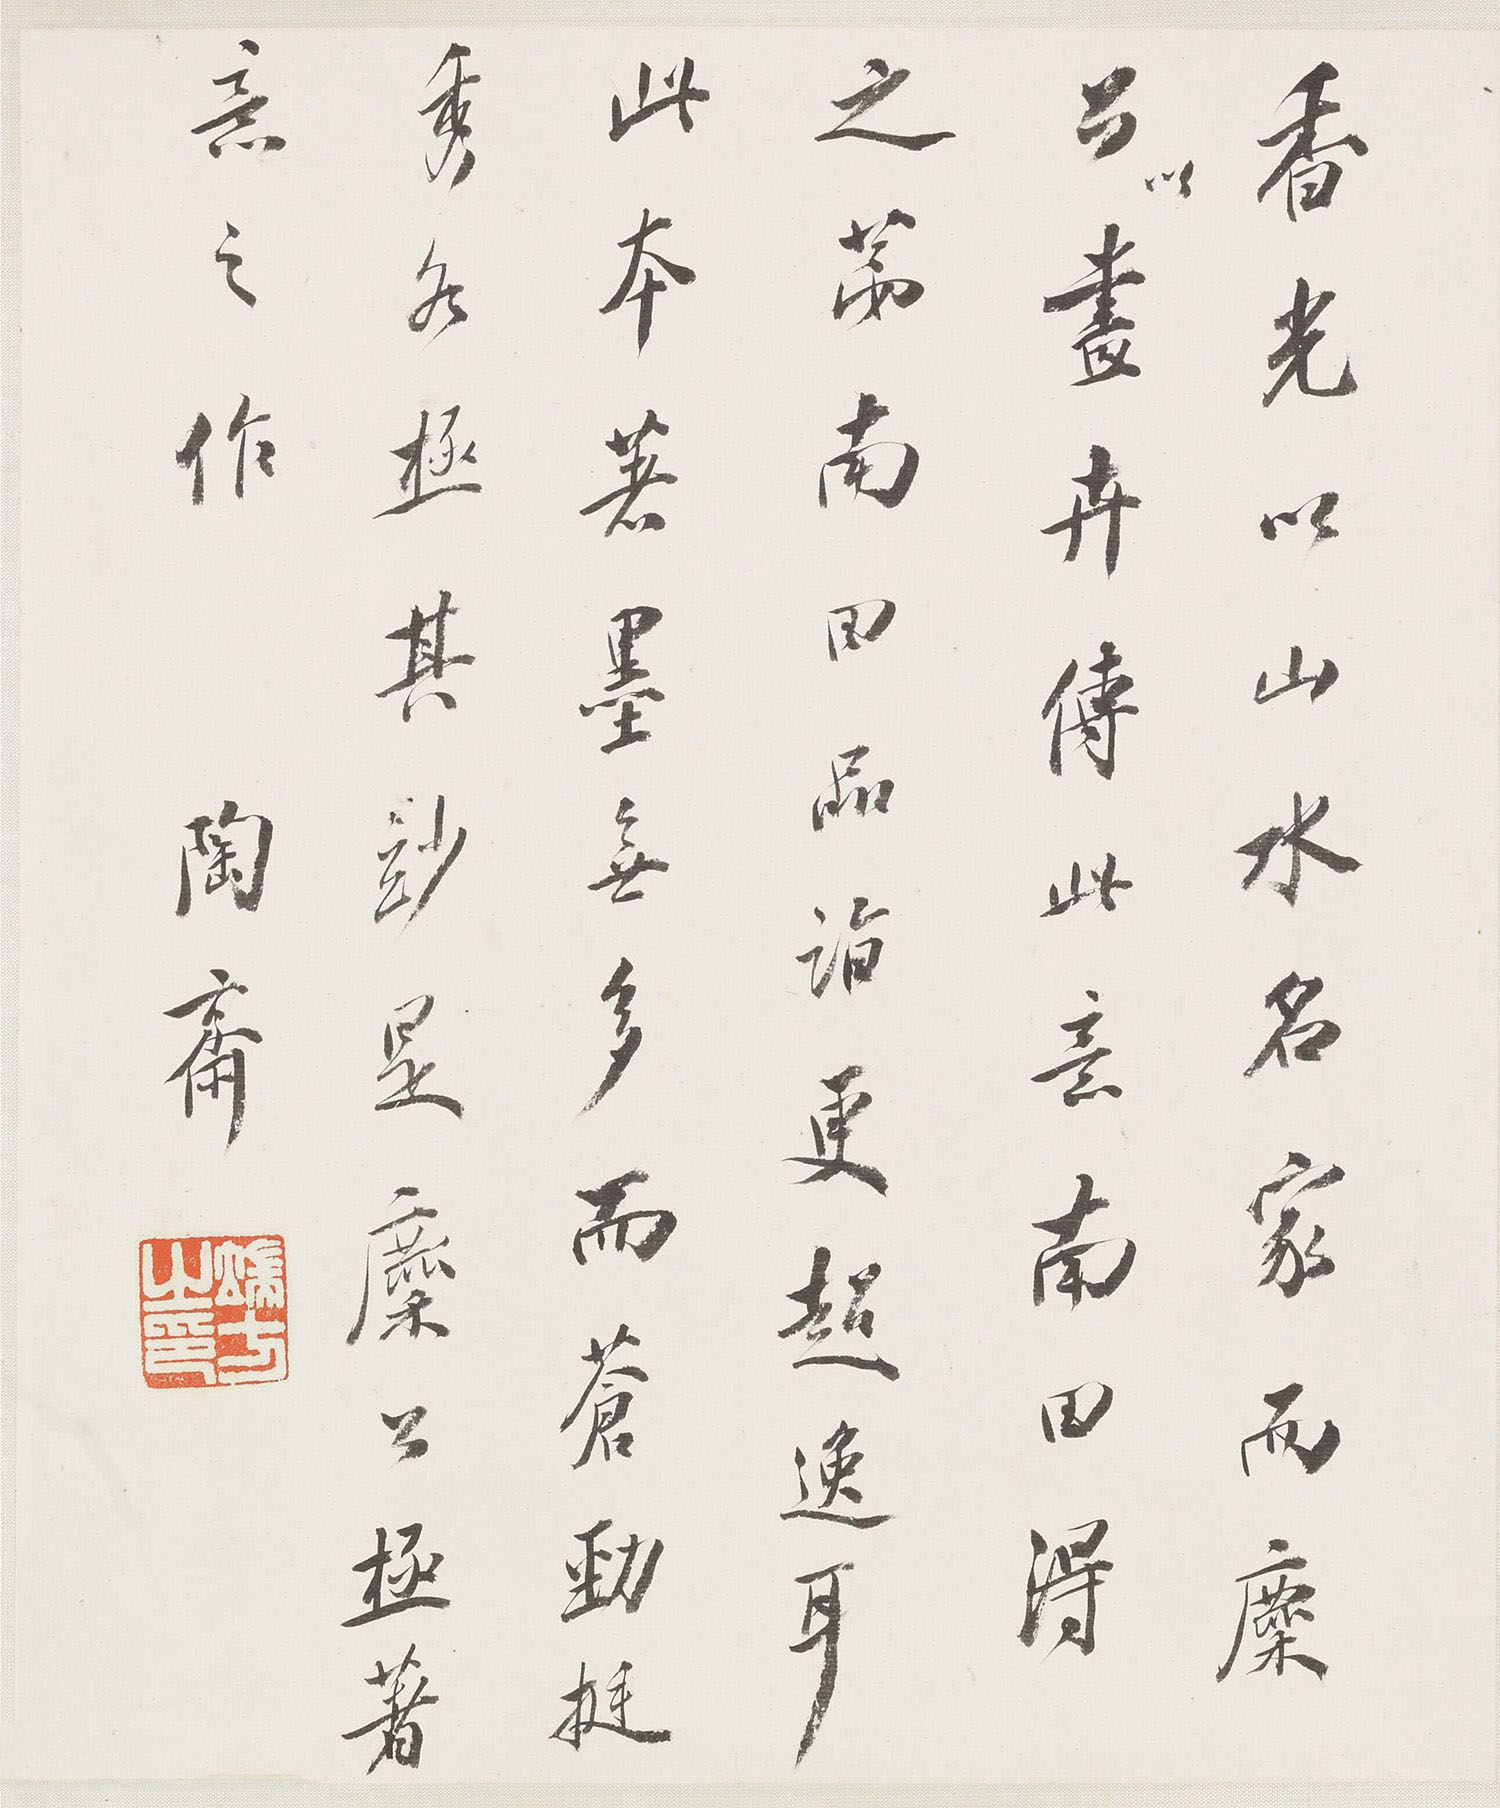 香光以山水名家而麋
公以畫卉傳此意南田得
之茀南田品詣更超逸耳
此本著墨無多而蒼勁挺
秀各極其妙是麋公極著
意之作 陶齋
端方之印